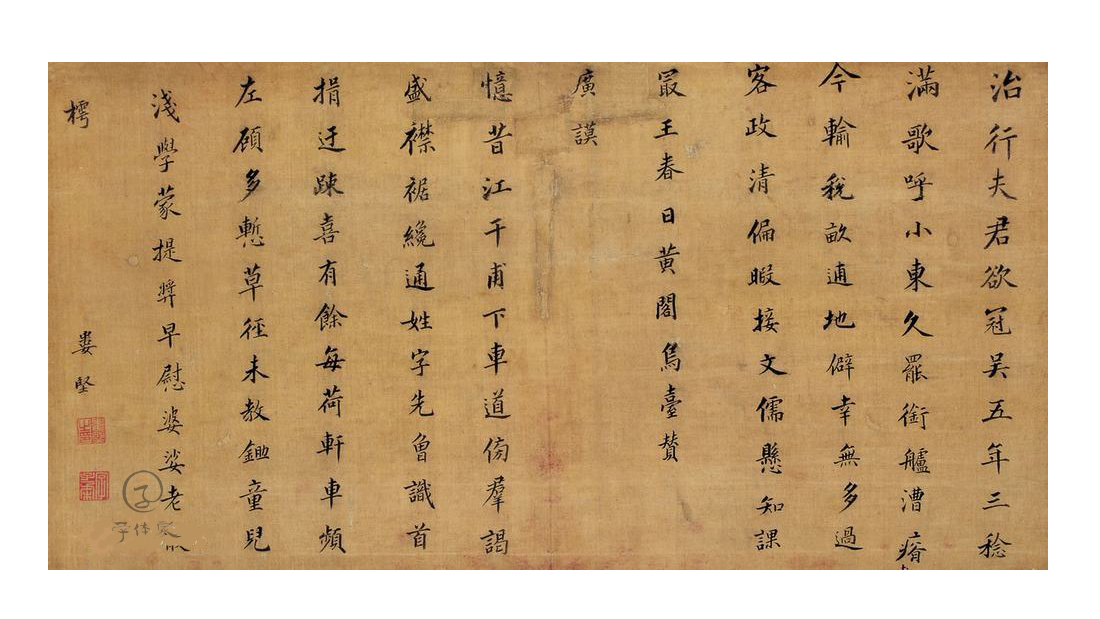 治行夫君欲冠吴五年三稔
滿歌呼小東久罷銜艫漕瘠
今輸稅畝逋地僻幸無多過
客政清偏暇接文儒懸知課
冣王春日黄閣烏臺賛
廣謨
憶昔江干甫下車道傍羣謁
盛襟裾纔通姓字先曾識首
捐迂踈喜有餘每荷軒車頻
左顧多慙草徑未教鋤童兒
淺學蒙提奬早慰婆娑老
樗
婁堅
字体家